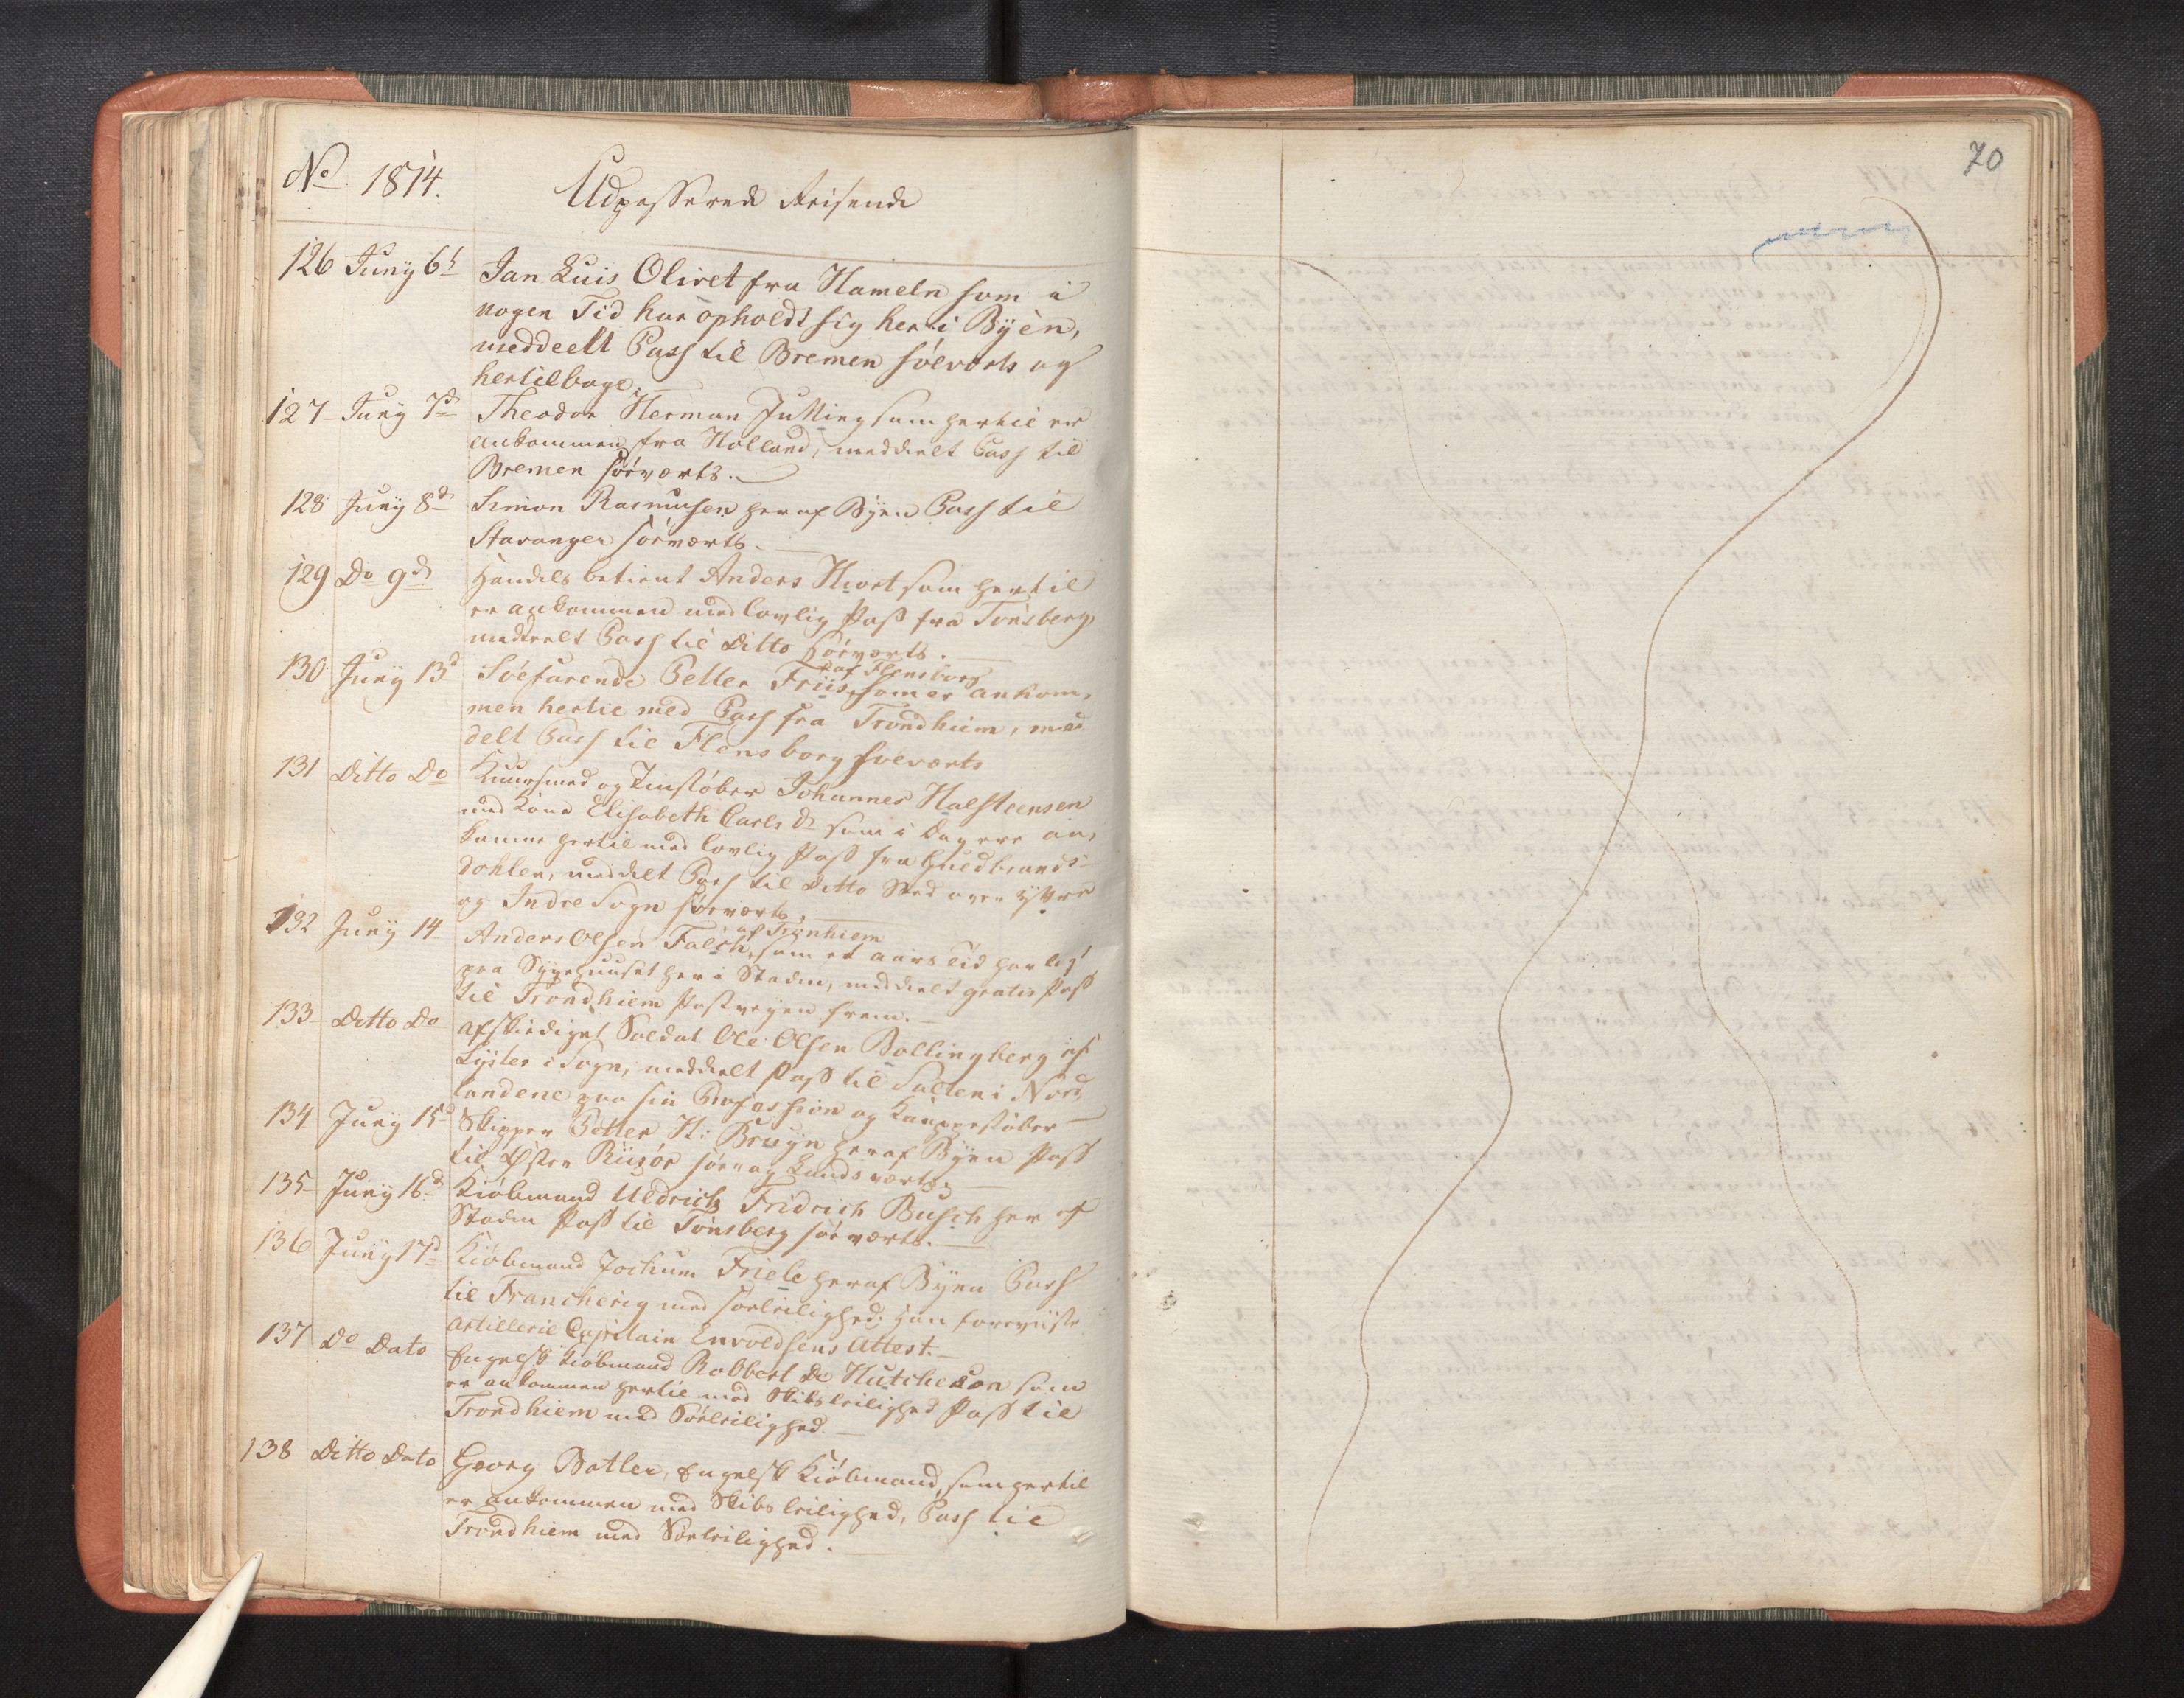 No 1814. Udpasserede Reisende
126 Juny 6t Jan Luis Olivet fra Hameln som i
nogen Tid har opholdt sig her i Byen,
meddeelt Pass til Bremen söeverts og
hertilbage.
127 Juny 7d Theodor Herman som hertil er
ankommen fra Holland, meddeelt Pass til
Bremen söeværts.
128 Juny 8d Simon Rasmusen her af Byen Pass til
Stavanger söeværts.
129 Do 9d Handels betient Anders Hiort som hertil
er ankommen med lovlig Pass fra Tönsberg
meddeelt Pass til Ditto Söeværts.
af Flensborg
130 Juny 13d Söefarende Petter Friis, som er ankom-
men hertil med Pass fra Trondhiem, med
delt Pass til Flensborg söeværts
131 Ditto Do og Tinstöber Johannes Halsteensen
med Kone Elisabeth Carls Dr som i Dag ere an-
komne hertil med lovlig Pass fra Guldbrands-
dahlen, meddelt Pass til Ditto Sted over yttre
og Indre Sogn söeværts.
af Tronhiem
132 Juny 14 Anders Olsen Falch, som et aars Tid har ligt
paa Sygehuuset her i Staden, meddeelt gratis Pass
til Trondhiem Postveyen frem.
133 Ditto Do afskediget Soldat Ole Olsen Bollingberg af
Lyster i Sogn, meddeelt Pass til Salten i Nord
landene paa sin Profession og
134 Juny 15d Skipper Petter H: Bruyn her af Byen Pass
til Öster Riisöer söe og Landsværts.
135 Juny 16d Kiöbmand Uldrich Fridrich Busch her af
Staden Pass til Tönsberg söeværts.
136 Juny 17d Kiöbmand Jochum Friele her af Byen Pass
til med Söeleilighed. Han foreviiste
Artillerie Capitain Envoldsens Attest.
137 Do Dato Engelsk Kiöbmand Robbert De Hutcheson som
er ankommen hertil med Skibsleilighed Pass til
Trondhiem med Söeleilighed.
138 Ditto Dato Georg Batler, Engelsk Kiöbmand, som hertil
er ankommen med Skibs leilighed, Pass til
Trondhiem med Söeleilighed.
70